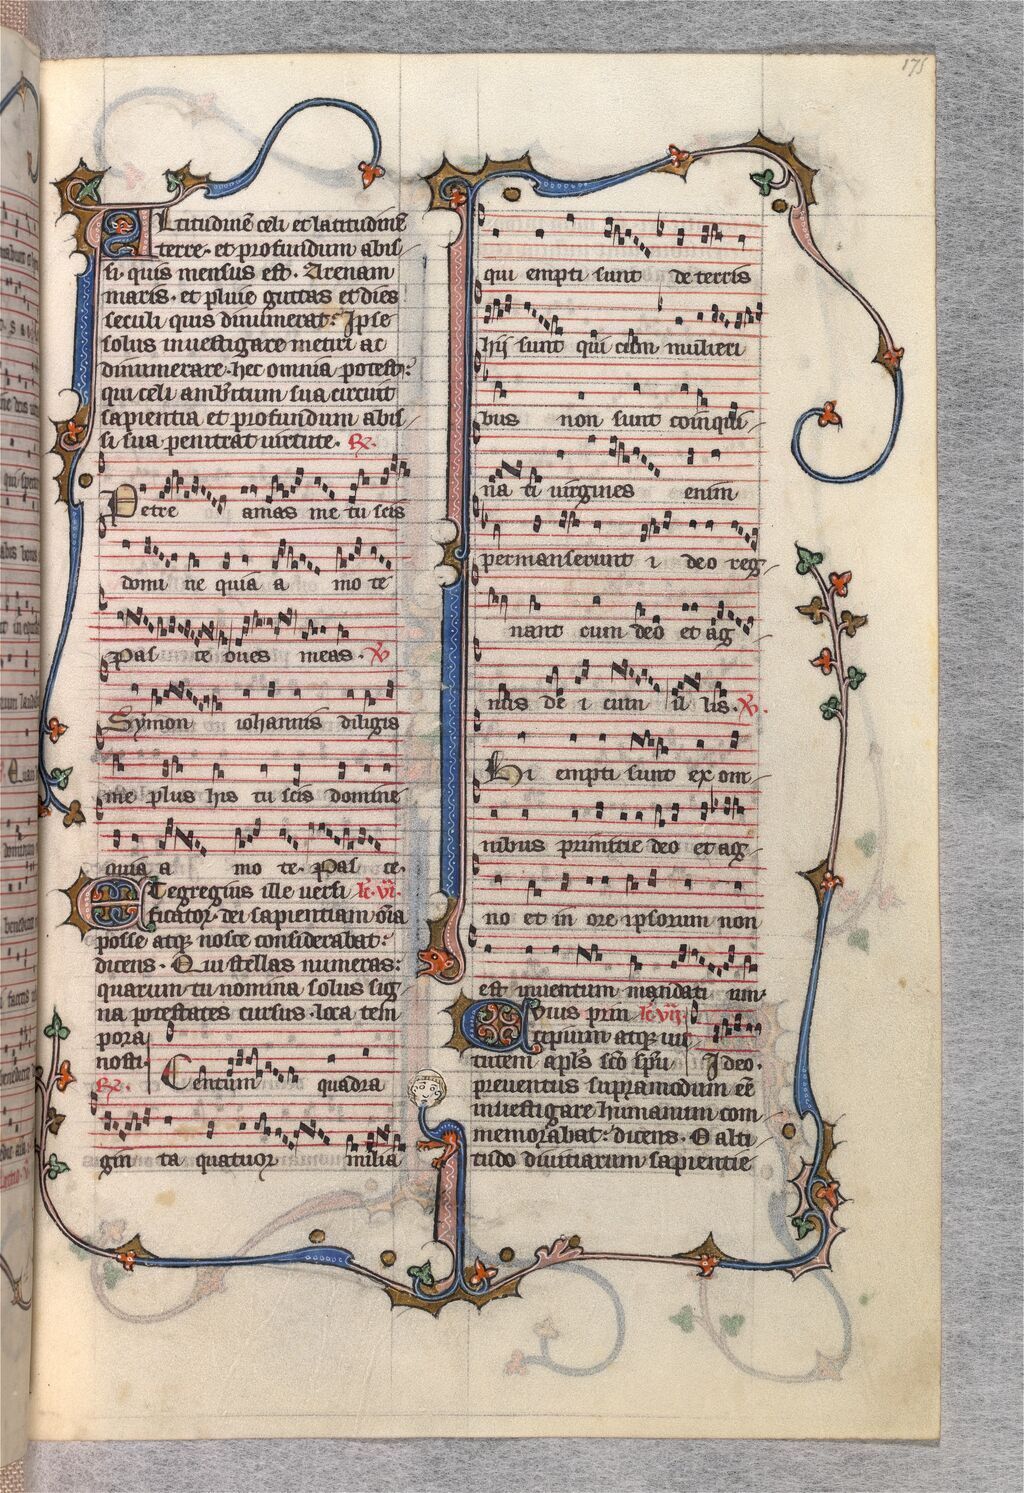 175
Altitudinē celi et latitudinē
terre. et profundum abis
si. quis mensus est. Arenam
maris. et pluie guttas et dies
seculi quis dinumerat: Ipse
solus inuestigare metiri ac
dinumerare. hec omnia potest:
qui celi ambitum sua circuit
sapientia et profundum abis
si sua penitrat uirtute. ℟.
Petre amas me tu scis
domi ne quia a mo te
Pas ce oues meas. ℣
Symon iohannis diligis
me plus his tu scis domine
quia a mo te. Pas ce.
Et egregius ille uersi lc. vi.
ficator. dei sapientiam oīa
posse atq; nosce considerabat:
dicens. Qui stellas numeras:
quarum tu nomina solus sig
na potestates cursus. loca tem
pora
nosti.
℟. Centum quadra
gin ta quatuor milia
qui empti sunt de terris
hij sunt qui cum mulieri
bus non sunt coinqui
na ti uirgines enim
permanserunt i deo reg
nant cum deo et ag
nus de i cum il lis. ℣.
Hi empti sunt ex om
nibus primitie deo et ag
no et in ore ipsorum non
est inuentum mendati um.
Ouius prin lc. vij.
cipium atq; uir
tutem apls scō spū Ideo.
preuentus supramodum eē
inuestigare humanum com
memorabat: dicens. O alti
tudo diuitiarum sapientie